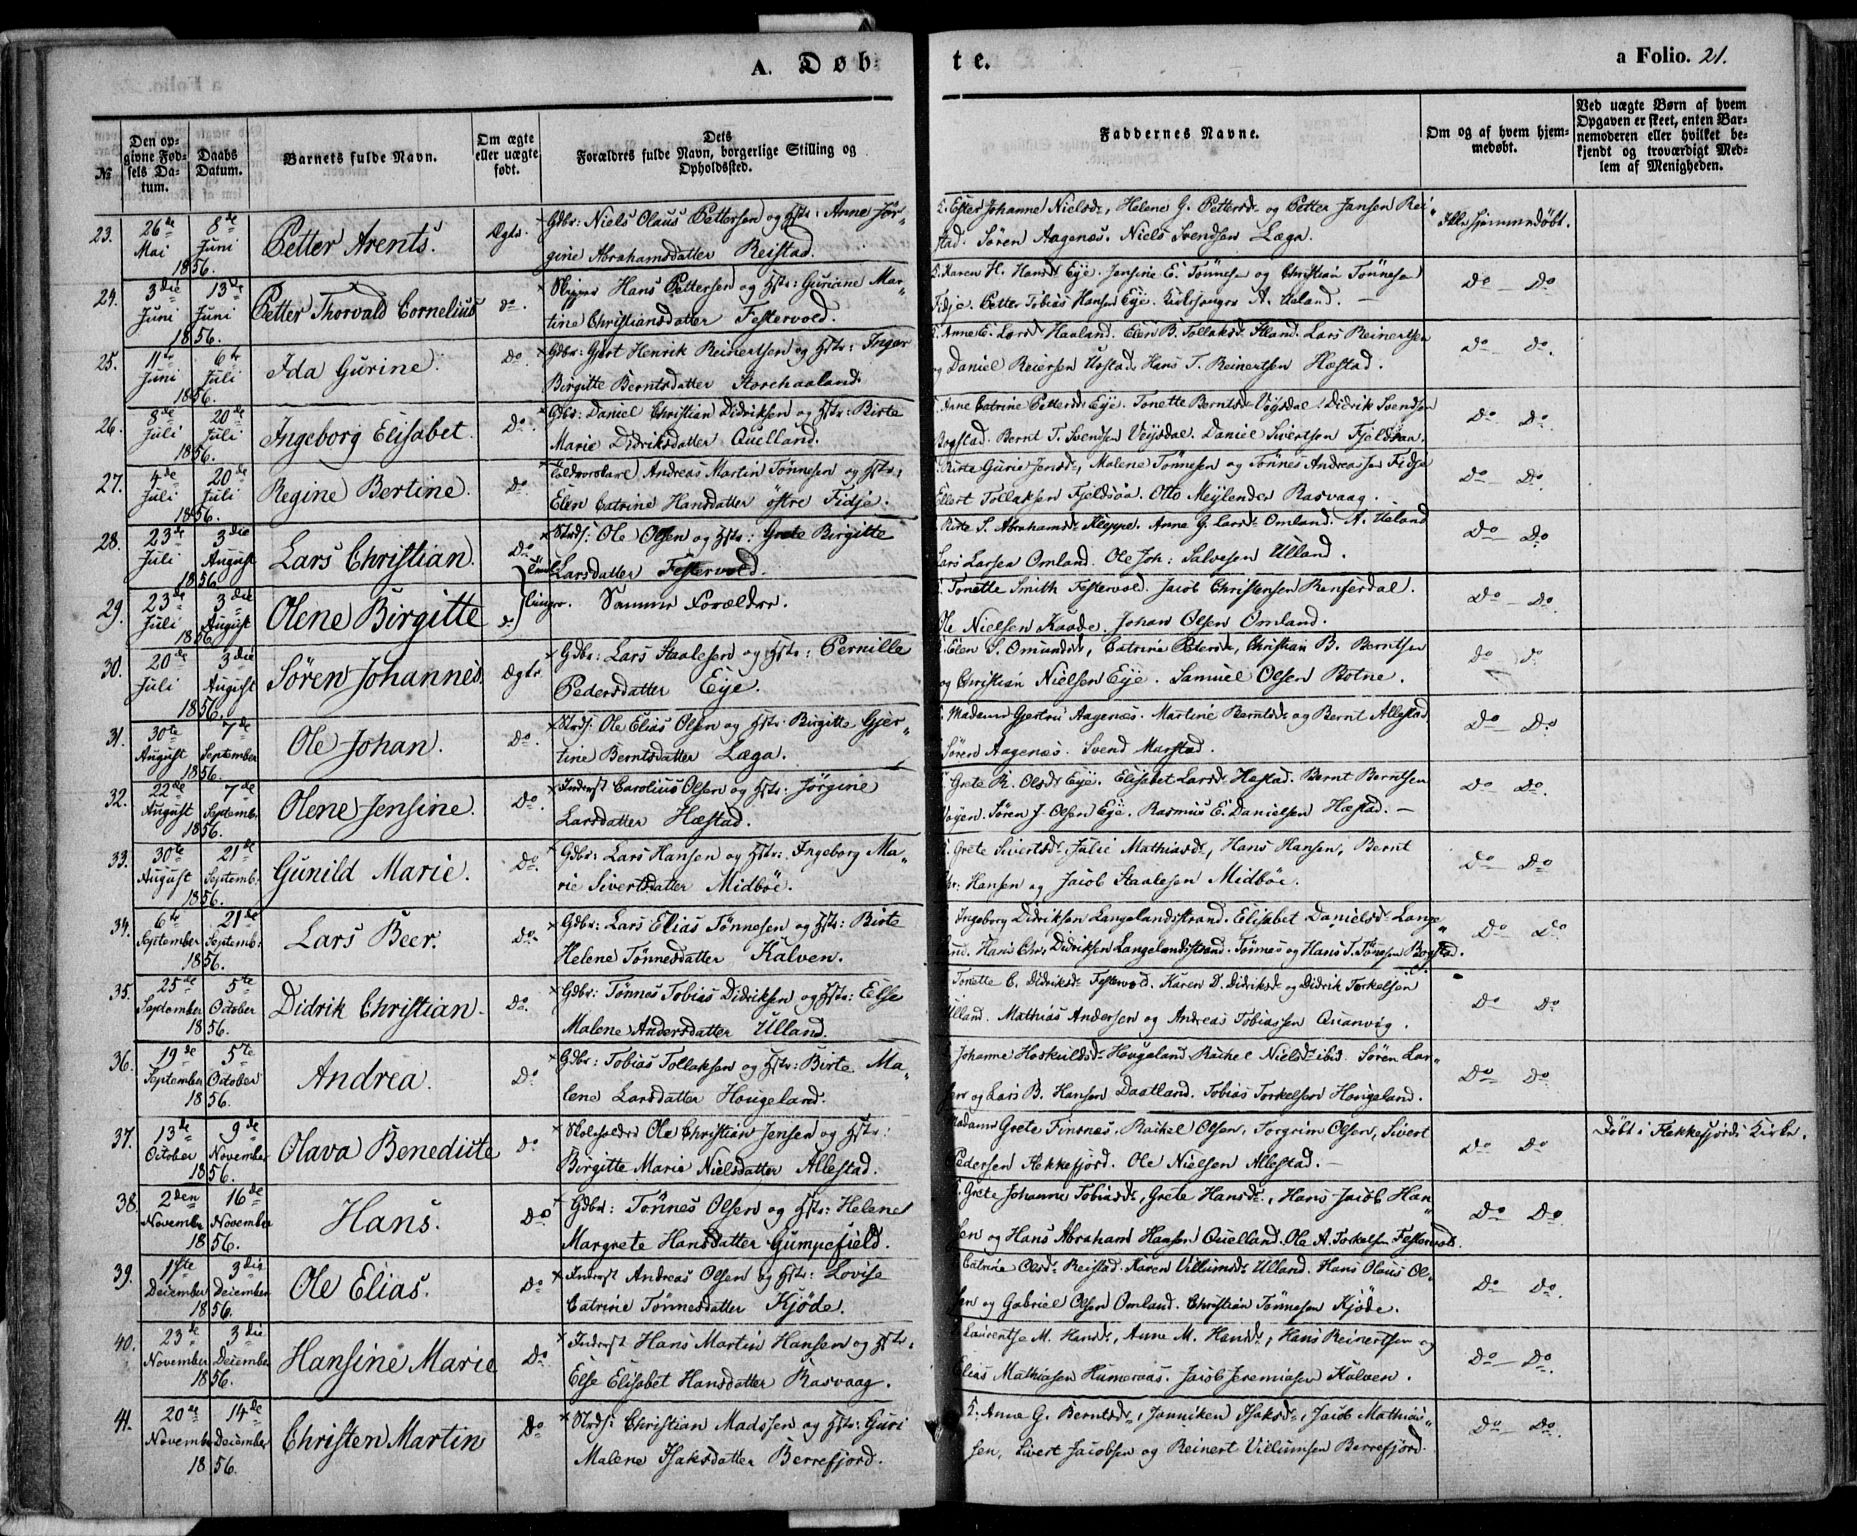 A. Døbte.
a Folio. 21.
№
Den opgivne Fødsels Datum.
Daabs Datum.
Barnets fulde Navn.
Om ægte eller uægte født.
Dets Forældres fulde Navn, borgerlige Stilling og Opholdssted.
Faddernes Navne.
Om og af hvem hjemmedøbt.
Ved uægte Børn af hvem Opgaven er skeet, enten Barnemoderen eller hvilket bekjendt og troværdigt Medlem af Menigheden.
23. 26de Mai 8de Juni 1856. Petter Arents. Ægte. Gdbr: Niels Olaus Pettersen og Hstr: Anne Jør-
gine Abrahamsdatter Reistad.
Ester Johanne Nielsd., Helene G. Pettersd. og Petter Jansen Rei-
stad. Søren Aagenæs. Niels Svendsen Læga. Ikke hjemmedøbt.
24. 3die Juni 13de Juni 1856. Petter Thorvald Cornelius do. Skipper Hans Pettersen og Hstr: Guriane Mar-
tine Christiansdatter Festervold.
Karen H. Hansd. Eye. Jensine E. Tönnesen og Christian Tönnesen
Fidje. Petter Tobias Hansen Eye. Kirkesanger A. Ueland. — Do — Do
25. 11te Juni 6te Juli 1856. Ida Gurine. Do Gdbr: Gjert Henrik Reinertsen og Hstr: Inger
Birgitte Berntsdatter Storehaaland.
Anne E. Larsd. Haaland. Elen B. Tollaksd. Lars Reinertsen
og Daniel Reiersen Urstad. Hans T. Reinertsen Hæstad. Do — do.
26. 8de Juli 20de Juli 1856. Ingeborg Elisabet. Do. Gdbr: Daniel Christian Didriksen og Hstr: Birte
Marie Didriksdatter Quelland.
Anne Catrine Pettersd. Eye. Tonette Berntsd. Veisdal. Didrik Svendsen
Bogstad. Bernt T. Svendsen Veisdal. Daniel Sivertsen Fjeldsaa. Do Do.
27. 4de Juli 20de Juli 1856. Regine Bertine. do Andreas Martin Tönnesen og Hstr:
Elen Catrine Hansdatter østre Fidje.
Birte Gurie Jensd., Malene Tönnesen og Tönnes Andreassen Fidje
Ellert Tollaksen Fjeldsaa. Otto Meylender Rasvaag. Do — Do
28. 23de Juli 3die August 1856 Lars Christian. Do Tvil- Strds: Ole Olsen og Hstr: Grete Birgitte
Larsdatter Festervold.
Birte S. Abrahamsd. Kleppe. Anne G. Larsd. Omland. A. Ueland
Lars Larsen Omland. Ole Joh: Salvesen Ulland. Do — Do
29. 23de Juli 3die August 1856 Olene Birgitte do linger. Samme Forældre.
Tonette Smith Festervold. Jacob Christensen Renferdal.
Ole Nielsen Kaade. Johan Olsen Omland. Do — Do.
30. 20de Juli 3die August 1856. Søren Johannes. Ægte. Gdbr: Lars Staalesen og Hstr: Pernille
Pedersdatter Eye.
Elen S. Omundsd., Catrine Petersd., Christian B. Berntsen
og Christian Nielsen Eye. Samuel Olsen Botne. do do.
31. 30te August 7de September 1856. Ole Johan. Do. Strds: Ole Elias Olsen og Hstr: Birgitte Gjer-
tine Berntsdatter Læga.
Madame Gjertrü Aagenæs. Martine Berntsd. og Bernt Allestad
Søren Aagenæs. Svend Marstad. Do — Do
32. 22de August 7de Septemb. 1856. Olene Jensine. Do. Inderst Carolius Olsen og Hstr: Jørgine
Larsdatter Hæstad.
Grete R. Olsd. Eye. Elisabet Larsd. Hæstad. Bernt Berntsen
Søren J. Olsen Eye. Rasmus E. Danielsen Hæstad. — Do Do.
33. 30te August 21de Septemb. 1856. Gunild Marie. Do. Gdbr: Lars Hansen og Hstr: Ingeborg Ma-
rie Sivertsdatter Midbøe.
Grete Sivertsd. Julie Mathiasd., Hans Hansen, Bernt
Chr: Hansen og Jacob Staalesen Midbøe. Do — Do
34. 6te September 21de Septemb: 1856. Lars Beer. Do. Gdbr: Lars Elias Tönnesen og Hstr: Birte
Helene Tönnesdatter Kalven.
Ingeborg Didriksen Langelandsstrand. Elisabet Danielsd. Lange-
land. Hans Chr. Didriksen Langelandsstrand. Tönnes og Hans T. Tönnesen Bogstad. Do — Do
35. 25de September 5te October 1856. Didrik Christian. Do. Gdbr: Tønnes Tobias Didriksen og Hstr: Else
Malene Andersdatter Ulland.
Tonette C. Didriksd. Festervold. Karen D. Didriksd. og Didrik Torkelsen
Ulland. Mathias Andersen og Andreas Tobiassen Quanvig. Do Do.
36. 19de September 5te October 1856. Andrea. Do Gdbr: Tobias Tollaksen og Hstr: Birte Ma-
lene Larsdatter Hougeland.
Johanne Hoskuldsd. Hougeland. Rachel Nielsd. ibid. Søren Lar-
sen og Lars B. Hansen Daatland. Tobias Torkelsen Hougeland. Do Do.
37. 13de October 9de November 1856. Olava Benedicte do Skoleholder Ole Christian Jensen og Hstr:
Birgitte Marie Nielsdatter Allestad.
Madame Grete Finsnæs. Rachel Olsen, Torgrim Olsen, Sivert
Pedersen Flekkefjord. Ole Nielsen Allestad. — Do Do. Døbt i Flekkefjords Kirke.
38. 2den November 16de November 1856. Hans. Do Gdbr: Tønnes Olsen og Hstr: Helene
Margrete Hansdatter Gumpefjeld.
Grete Johanne Tobiasd., Grete Hansd., Hans Jacob Han-
sen og Hans Abraham Hansen Quelland. Ole A. Torkelsen Festervold. Do Do.
39. 1ste December 3die December 1856. Ole Elias. Do Inderst Andreas Olsen og Hstr: Lovise
Catrine Tönnesdatter Kjöde.
Catrine Olsd. Reistad. Karen Villumsd. Ulland. Hans Olaus Ol-
sen og Gabriel Olsen Omland. Christian Tönnesen Kjöde. Do — do.
40. 23de November 3die December 1856. Hansine Marie Do. Inderst Hans Martin Hansen og Hstr:
Else Elisabet Hansdatter Rasvaag.
Laurentse M. Hansd., Anne M. Hansd., Hans Reinertsen og
Elias Mathiasen Humeraas. Jacob Jeremiasen Kalven. Do — Do.
41. 20de November 14de December 1856. Christen Martin Do Strds: Christian Madssen og Hstr: Guri
Malene Isaksdatter Berrefjord.
Anne G. Berntsd., Janniken Isaksd., Jacob Mathias-
sen, Sivert Jacobsen og Reinert Villumsen Berrefjord. Do — Do.